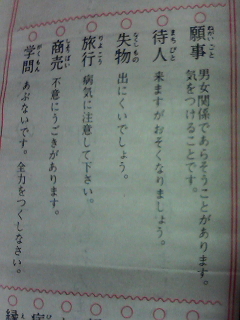 願事 男女関係であらそうことがあります。
気をつけることです。
待人 来ますがおそくなりましょう。
失物 出にくいでしょう。
旅行 病気に注意して下さい。
商売 不意にうごきがあります。
学問 あぶないです。全力をつくしなさい。